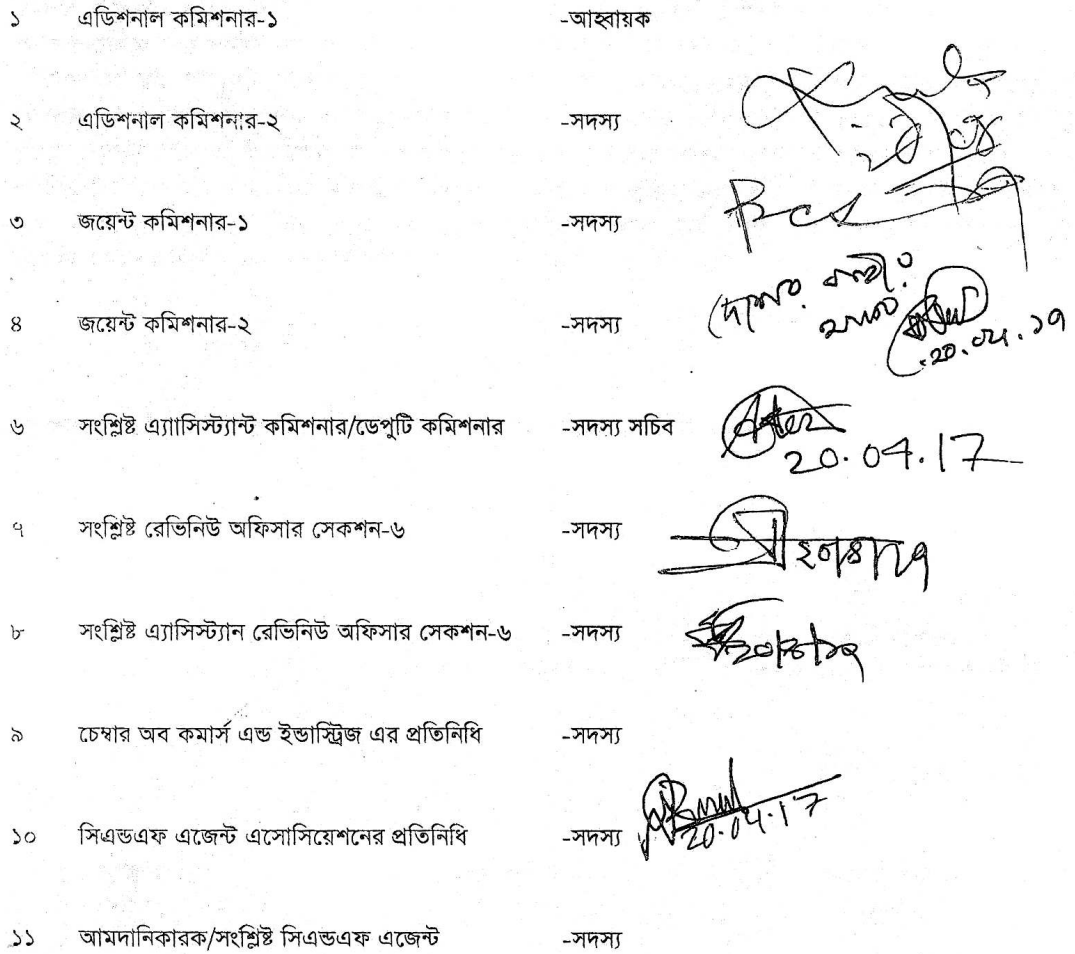 ১ এডিশনাল কমিশনার-১ -আহ্বায়ক
২ এডিশনাল কমিশনার-২ -সদস্য
৩ জয়েন্ট কমিশনার-১ -সদস্য
৪ জয়েন্ট কমিশনার-২ -সদস্য
20.04.17
৬ সংশ্লিষ্ট এ্যাসিস্ট্যান্ট কমিশনার/ডেপুটি কমিশনার -সদস্য সচিব
20.04.17
৭ সংশ্লিষ্ট রেভিনিউ অফিসার সেকশন-৬ -সদস্য
২০/৪/১৭
৮ সংশ্লিষ্ট এ্যাসিস্ট্যান রেভিনিউ অফিসার সেকশন-৬ -সদস্য
২০/৪/১৭
৯ চেম্বার অব কমার্স এন্ড ইন্ডাস্ট্রিজ এর প্রতিনিধি -সদস্য
১০ সিএন্ডএফ এজেন্ট এসোসিয়েশনের প্রতিনিধি -সদস্য
20.04.17
১১ আমদানিকারক/সংশ্লিষ্ট সিএন্ডএফ এজেন্ট -সদস্য